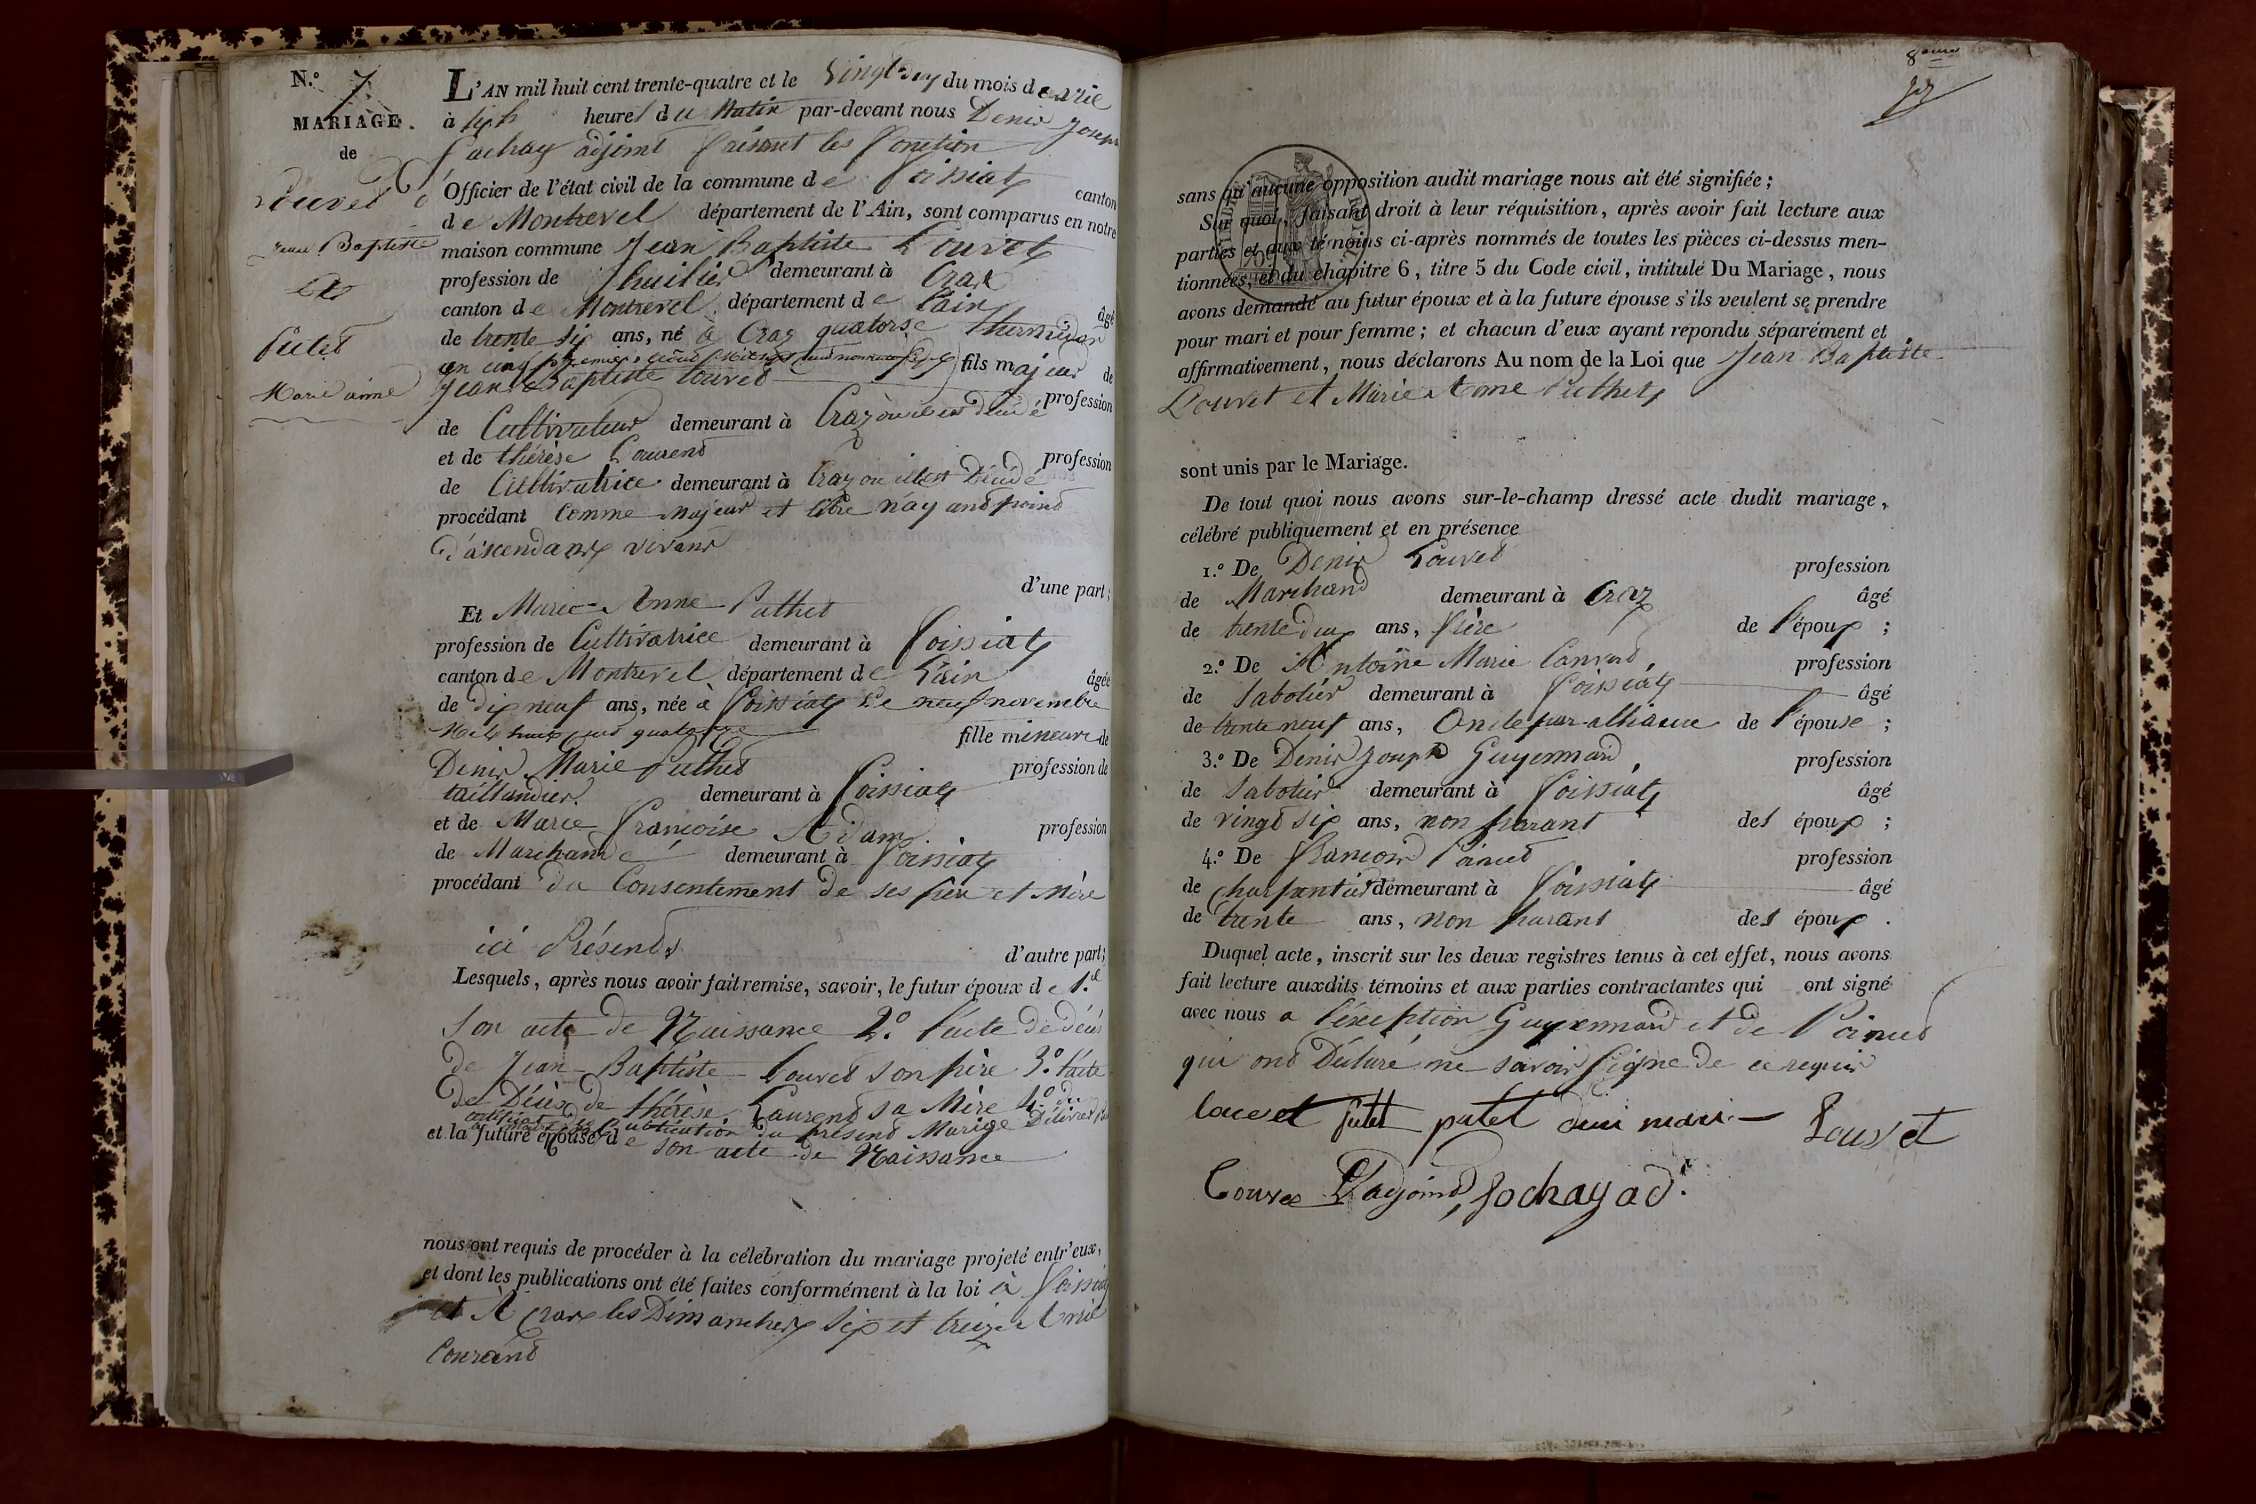 N.o 7
MARIAGE.
de
Louvet
Jean Baptiste
et
putet
Marie anne
L'AN mil huit cent trente-quatre et le vingt deux du mois de avril
à sept heures du Matin par-devant nous Denis Joseph
adjoint faisant les fonction
d'Officier de l'état civil de la commune de foissiat canton
de Montrevel département de l'Ain, sont comparus en notre
maison commune Jean Baptiste Louvet
profession de huilier demeurant à Cras
canton de Montrevel département de l'ain âgé
de trente six ans, né à Cras quatorse thermidor
an cinq fils majeur de
Jean Baptiste louvet profession
de Cultivateur demeurant à Craz où il est décédé
et de thérèse Laurent profession
de Cultivatrice demeurant à Craz où elle est décédé
procédant Comme Majeur et libre n'ayant point
d'ascendans vivans
d'une part;
Et Marie-Anne Puthet
profession de Cultivatrice demeurant à foissiat
canton de Montrevel département de l'ain âgée
de dix neuf ans, née à foissiat le neuf novembre
Mil huit cent quatorze fille mineure de
Denis Marie puthet profession de
taillandier demeurant à foissiat
et de Marie françoise Adam profession
de Marchande demeurant à foissiat
procédant du Consentement de ses père et Mère
ici Présents d'autre part;
Lesquels, après nous avoir fait remise, savoir, le futur époux de 1.o
Son acte de Naissance 2.o l'acte de décès
de Jean-Baptiste Louvet son père 3.o l'acte
de Décès de thérèse Laurent sa Mère 4.o du
certificat de publication du présent Mariage Délivré
et la future épouse de son acte de Naissance
nous ont requis de procéder à la célébration du mariage projeté entr'eux,
et dont les publications ont été faites conformément à la loi à foissiat
et A Cras les Dimanches six et treize Avril
Courant
sans qu'aucune opposition audit mariage nous ait été signifiée;
Sur quoi, faisant droit à leur réquisition, après avoir fait lecture aux
parties et aux témoins ci-après nommés de toutes les pièces ci-dessus men-
tionnées, et du chapitre 6, titre 5 du Code civil, intitulé Du Mariage, nous
avons demandé au futur époux et à la future épouse s'ils veulent se prendre
pour mari et pour femme; et chacun d'eux ayant repondu séparément et
affirmativement, nous déclarons Au nom de la Loi que Jean Baptiste
Louvet et Marie Anne Puthet
sont unis par le Mariage.
De tout quoi nous avons sur-le-champ dressé acte dudit mariage,
célébré publiquement et en présence
1.o De Denis Louvet profession
de Marchand demeurant à Craz âgé
de trente deux ans, frère de l'époux;
2.o De Antoine Marie profession
de Sabotier demeurant à foissiat âgé
de trente neuf ans, Oncle par alliance de l'épouse;
3.o De Denis Joseph Guyennard profession
de Sabotier demeurant à foissiat âgé
de vingt six ans, non parant des époux;
4.o De françois profession
de charpentier demeurant à foissiat âgé
de trente ans, non parant des époux.
Duquel acte, inscrit sur les deux registres tenus à cet effet, nous avons
fait lecture auxdits témoins et aux parties contractantes qui ont signé
avec nous a l'éxception Guyennard et de
qui ont Déclaré ne savoir signe de ce requis
louvet putet putet Louvet
Louvet L'adjoint, fochay ad.t